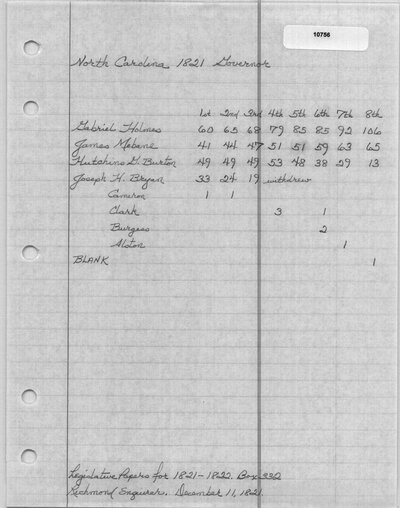 10756
North Carolina 1821 Governor
1st 2nd 3rd 4th 5th 6th 7th 8th
Gabriel Holmes 60 65 68 79 85 85 92 106
James Mebane 41 44 47 51 51 59 63 65
Hutchins G. Burton 49 49 49 53 48 38 29 13
Joseph H. Bryan 33 24 19 withdrew
Cameron 1 1
Clark 3 1
Burgess 2
Alston 1
BLANK 1
Legislative Papers for 1821-1822. Box 332
Richmond Enquirer. December 11, 1821.